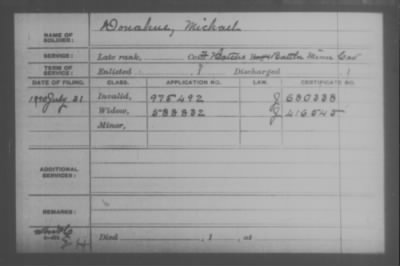 Donahue, Michael
NAME OF SOLDIER:
SERVICE: Late rank, Co. Hatch's Minn Cav
TERM OF SERVICE: Enlisted , 1 Discharged , 1
DATE OF FILING. CLASS. APPLICATION NO. LAW. CERTIFICATE NO.
1890 July 21 Invalid, 975492 J 680338
Widow, 588832 J 416545
Minor,
ADDITIONAL SERVICES:
REMARKS:
Died , 1 , at